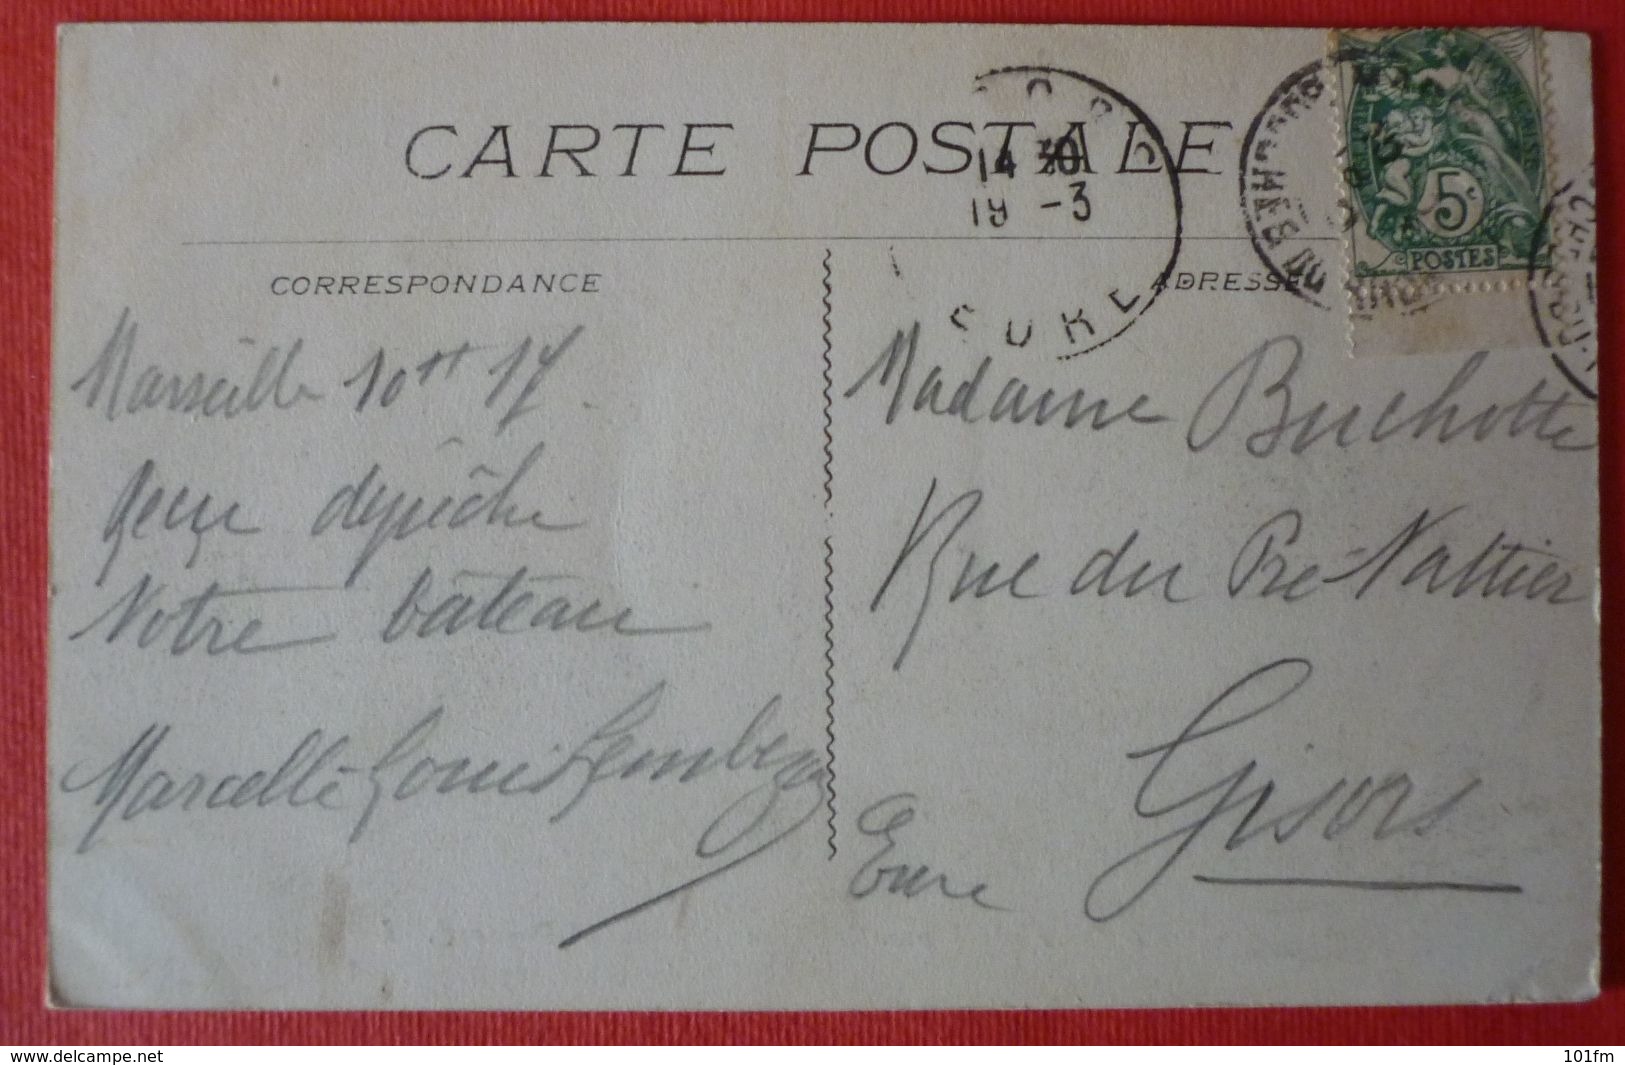 CARTE POSTALE
14 30
19 -3
EURE
5c
POSTES
CORRESPONDANCE
ADRESSE
Marseille 10 17
dépêche
Notre bâteau
Marcelle Louis
Madame Buchotte
Rue du Pré-Nattier
Gisors
Eure
www.delcampe.net
101fm